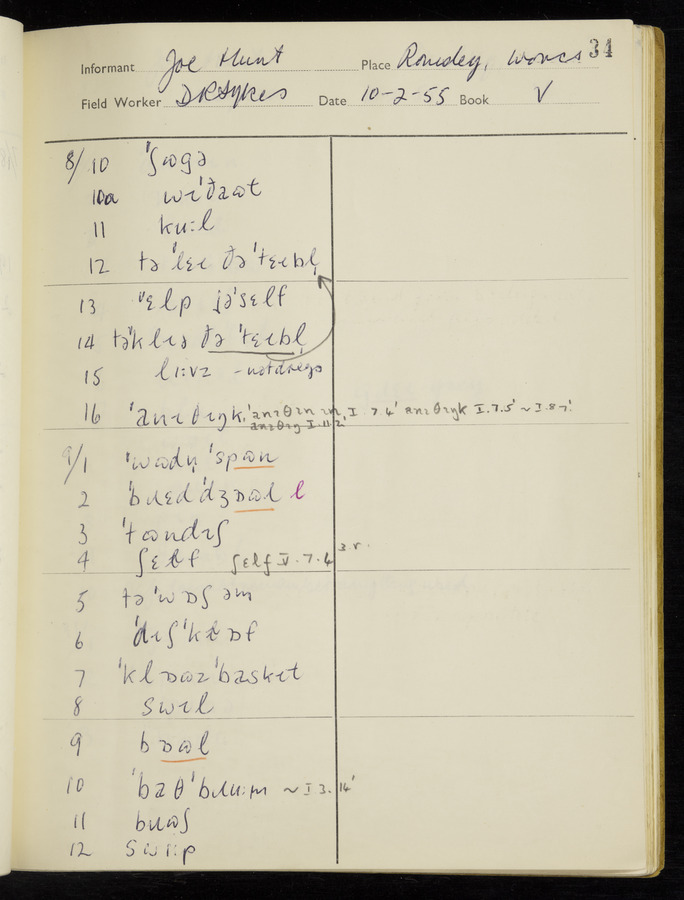 34
Informant Joe Hunt Place Romsley, Worcs
Field Worker DRSykes Date 10-2-55 Book V
8/10 ˈʃɷgə
10a wɪˈðaɷt
11 kuːl
12 tə ˈlɛɪ ðə ˈtɛɪbl̩
13 ˈɛlp jəˈsɛlf
14 təˈklɪə ðə ˈtɛɪbl̩
15 liːvz - not dregs
16 ˈanɪθɪŋk, ˈanɪθɪn I 7.4' anɪθɪŋk I.7.5' ~ I.8.7'
anɪθɪŋ I.11.2'
9/1 ˈwɷdn̩ ˈspɷn
2 ˈbɹɛd ˈdʒɒɷl l
3 ˈtɷndɪʃ
4 ʃɛlf ʃɛlf V.7.4 3 r.
5 tə ˈwɒʃ əm
6 ˈdɪʃ ˈklɒf
7 ˈklɒɷz ˈbaskɪt
8 swɪl
9 bɒɷl
10 ˈbaθ ˈbɹuːm ~ I 3.14'
11 bɹɷʃ
12 swiːp